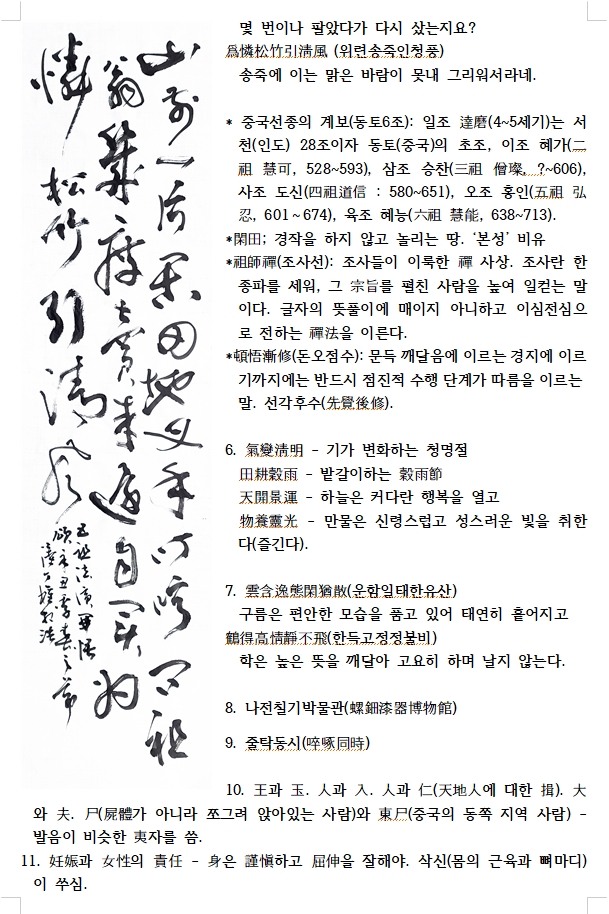 山前一片閑田地叉手叮嚀問祖
翁幾度賣来還自買為
憐松竹引清風
五祖法演開悟
몇 번이나 팔았다가 다시 샀는지요?
爲憐松竹引淸風 (위련송죽인청풍)
송죽에 이는 맑은 바람이 못내 그리워서라네.
* 중국선종의 계보(동토6조): 일조 達磨(4~5세기)는 서
천(인도) 28조이자 동토(중국)의 초조, 이조 혜가(二
祖 慧可, 528~593), 삼조 승찬(三祖 僧璨, ?~606),
사조 도신(四祖道信 : 580~651), 오조 홍인(五祖 弘
忍, 601～674), 육조 혜능(六祖 慧能, 638~713).
*閑田; 경작을 하지 않고 놀리는 땅. ‘본성’ 비유
*祖師禪(조사선): 조사들이 이룩한 禪 사상. 조사란 한
종파를 세워, 그 宗旨를 펼친 사람을 높여 일컫는 말
이다. 글자의 뜻풀이에 매이지 아니하고 이심전심으
로 전하는 禪法을 이른다.
*頓悟漸修(돈오점수): 문득 깨달음에 이르는 경지에 이르
기까지에는 반드시 점진적 수행 단계가 따름을 이르는
말. 선각후수(先覺後修).
6. 氣變淸明 - 기가 변화하는 청명절
田耕穀雨 - 밭갈이하는 穀雨節
天開景運 - 하늘은 커다란 행복을 열고
物養靈光 - 만물은 신령스럽고 성스러운 빛을 취한
다(즐긴다).
7. 雲含逸態閑猶散(운함일태한유산)
구름은 편안한 모습을 품고 있어 태연히 흩어지고
鶴得高情靜不飛(한득고정정불비)
학은 높은 뜻을 깨달아 고요히 하며 날지 않는다.
8. 나전칠기박물관(螺鈿漆器博物館)
9. 줄탁동시(啐啄同時)
10. 王과 玉. 人과 入. 人과 仁(天地人에 대한 揖). 大
와 夫. 尸(屍體가 아니라 쪼그려 앉아있는 사람)와 東尸(중국의 동쪽 지역 사람) -
발음이 비슷한 夷자를 씀.
11. 妊娠과 女性의 責任 - 身은 謹愼하고 屈伸을 잘해야. 삭신(몸의 근육과 뼈마디)
이 쑤심.